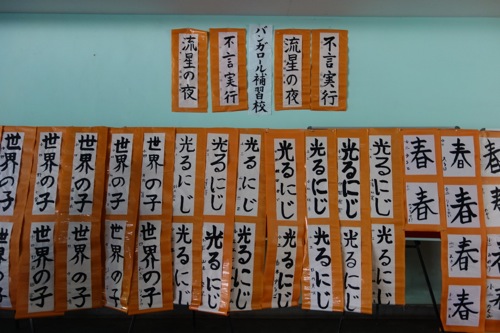 流星の夜
不言実行
バンガロール補習校
流星の夜
不言実行
世界の子
世界の子
世界の子
世界の子
世界の子
光るにじ
光るにじ
光るにじ
光るにじ
光るにじ
光るにじ
光るにじ
春
春
春
世界の子
世界の子
世界の子
世界の子
光るにじ
光るにじ
光るにじ
光るにじ
光るにじ
光るにじ
光るにじ
春
春
春
春
春